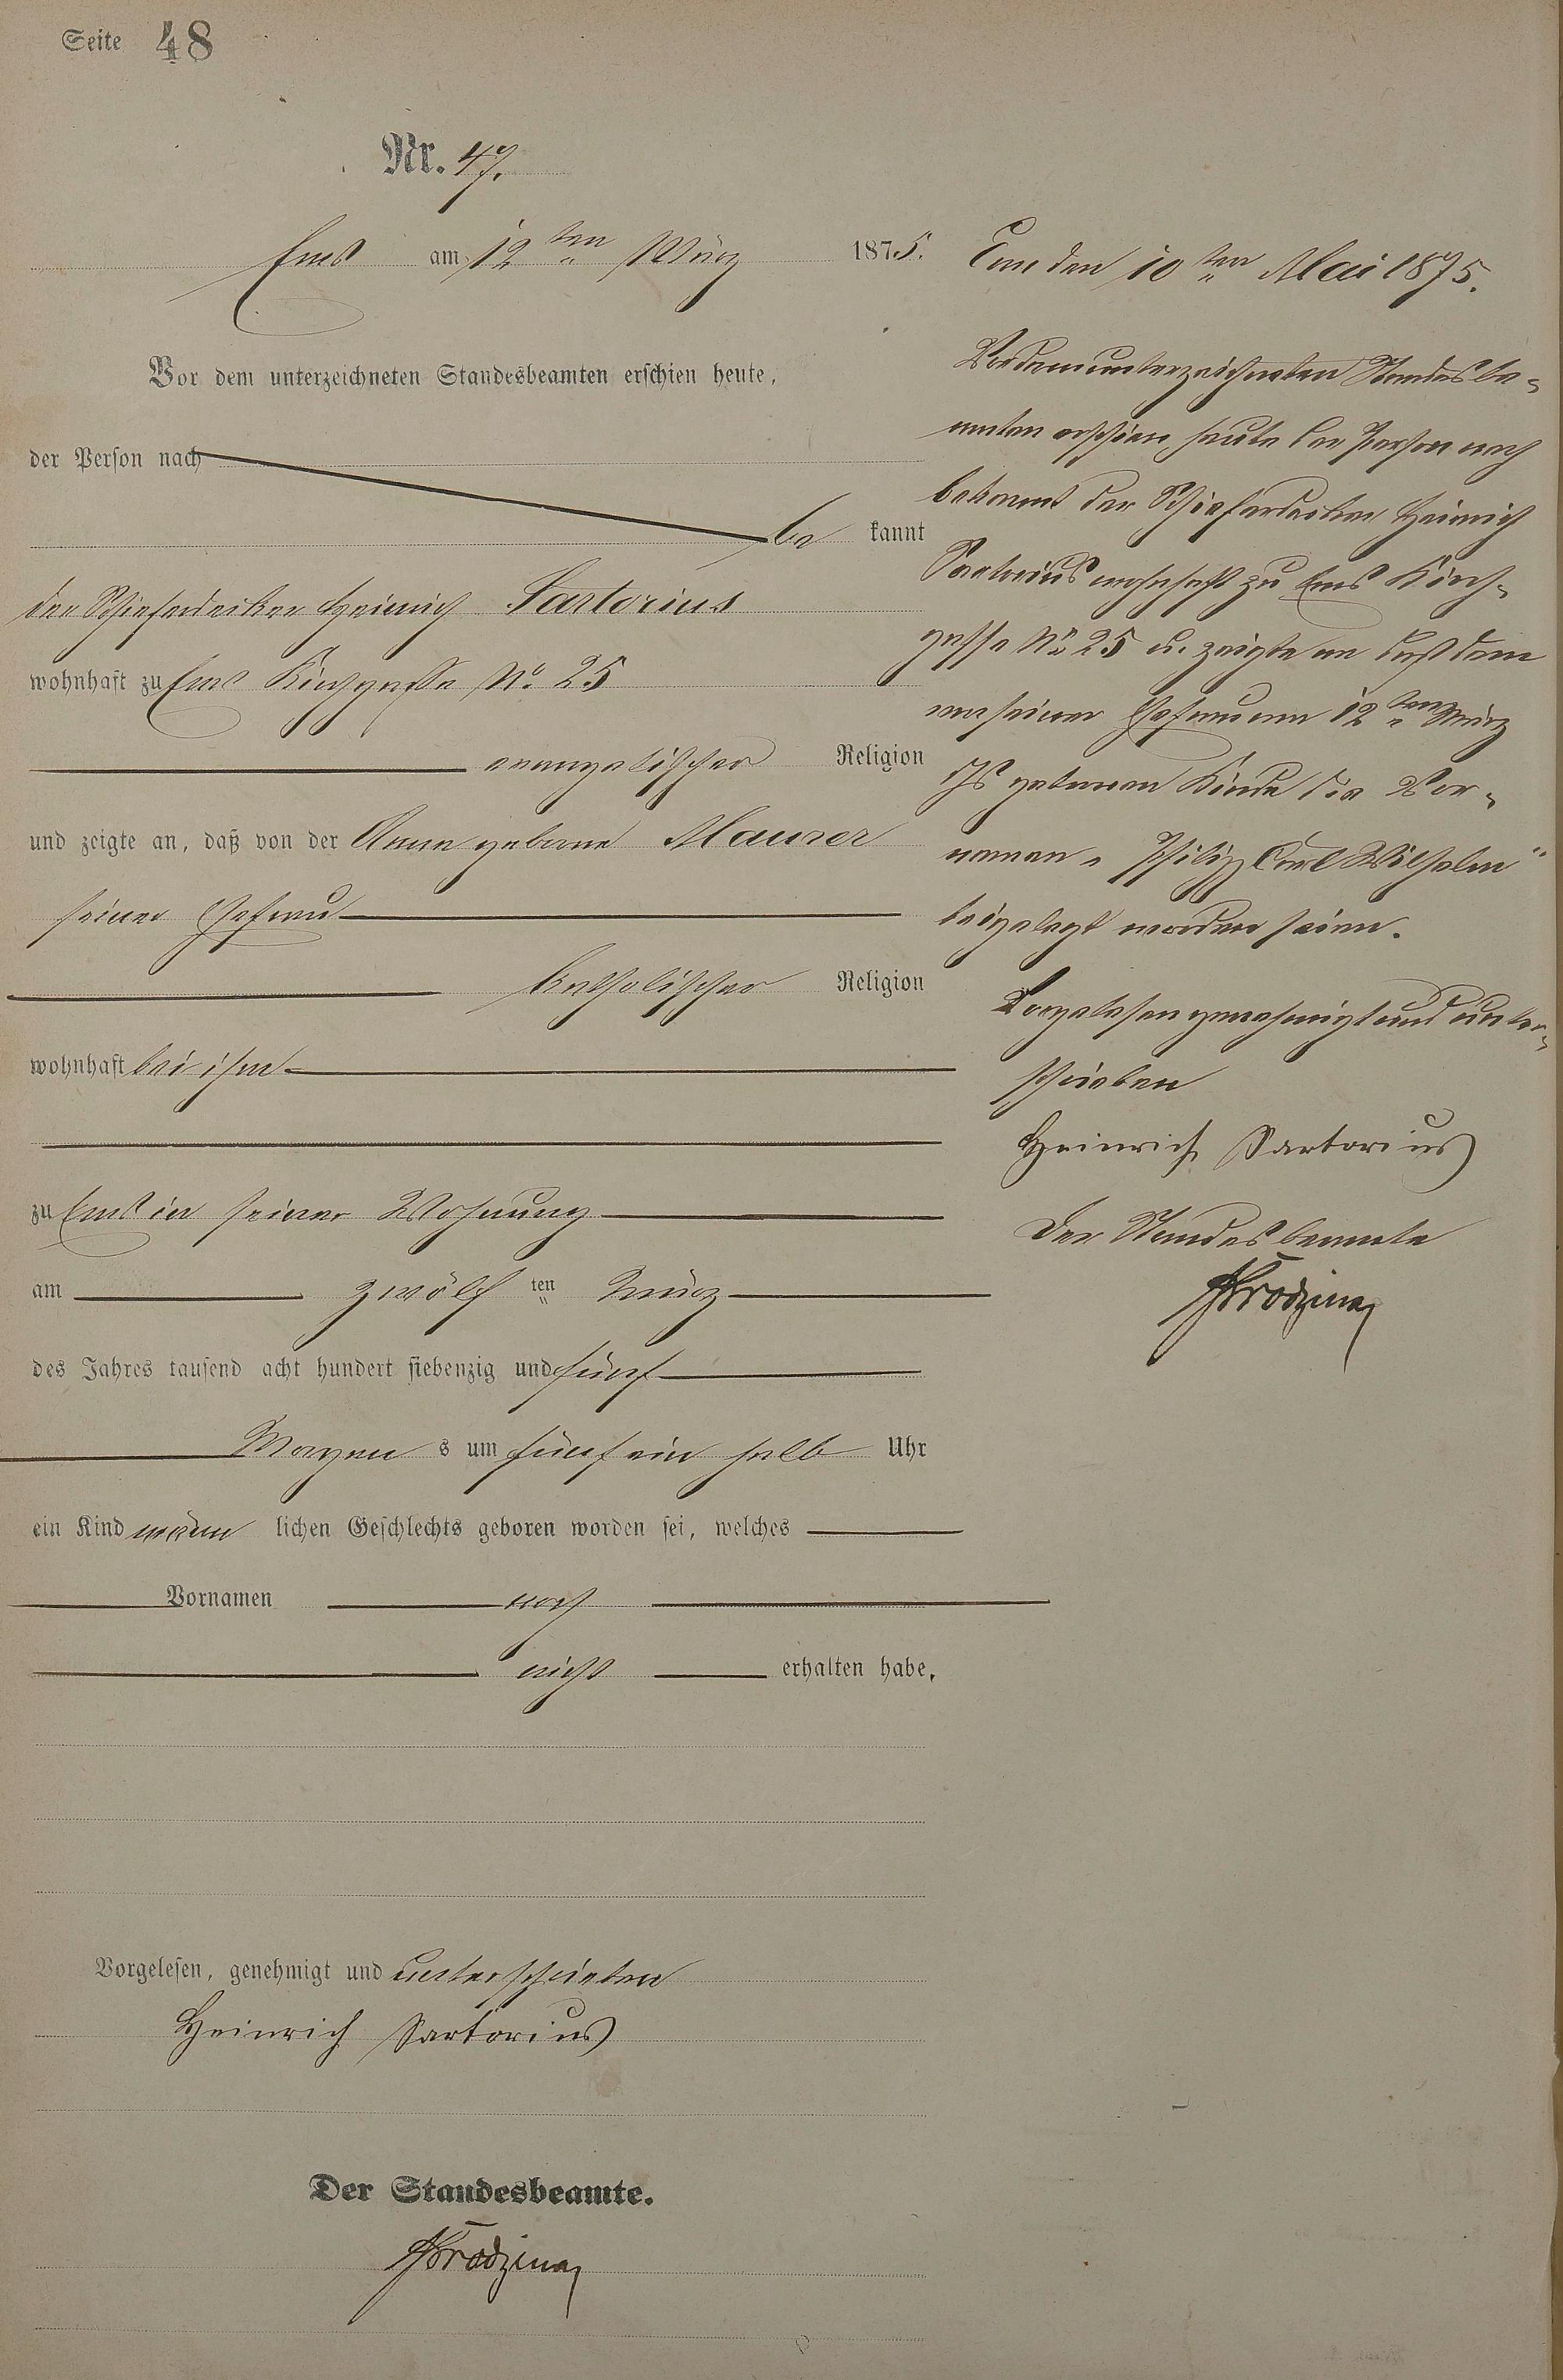 Seite 48
Nr. 47.
Ems am 12ten März 1875.
Vor dem unterzeichneten Standesbeamten erschien heute,
der Person nach
be kannt
der Schieferdecker Heinrich Sartorius
wohnhaft zu Ems Kirchgasse No. 25
evangelischer Religion
und zeigte an, daß von der Anna geborne Maurer
seiner Ehefrau
katholischer Religion
wohnhaft bei ihm
zu Ems in seiner Wohnung
am zwölf ten März
des Jahres tausend acht hundert siebenzig und fünf
Morgen s um fünf ein halb Uhr
ein Kind männ lichen Geschlechts geboren worden sei, welches
Vornamen noch
nicht erhalten habe,
Vorgelesen, genehmigt und unterschrieben
Heinrich Sartorius
Der Standesbeamte.
Ems den 10ten Mai 1875.
Vor dem unterzeichneten Standesbe-
amten erschien heute der Person nach
bekannt der Schieferdecker Heinrich
Sartorius wohnhaft zu Ems Kirch-
gasse No 25 u. zeigte an daß dem
von seiner Ehefrau am 12ten März
Js geborenen Kinde die Vor-
namen „Philipp Carl Wilhelm"
beigelegt worden seien.
Vorgelesen genehmigt und unter-
schrieben
Heinrich Sartorius
Der Standesbeamte